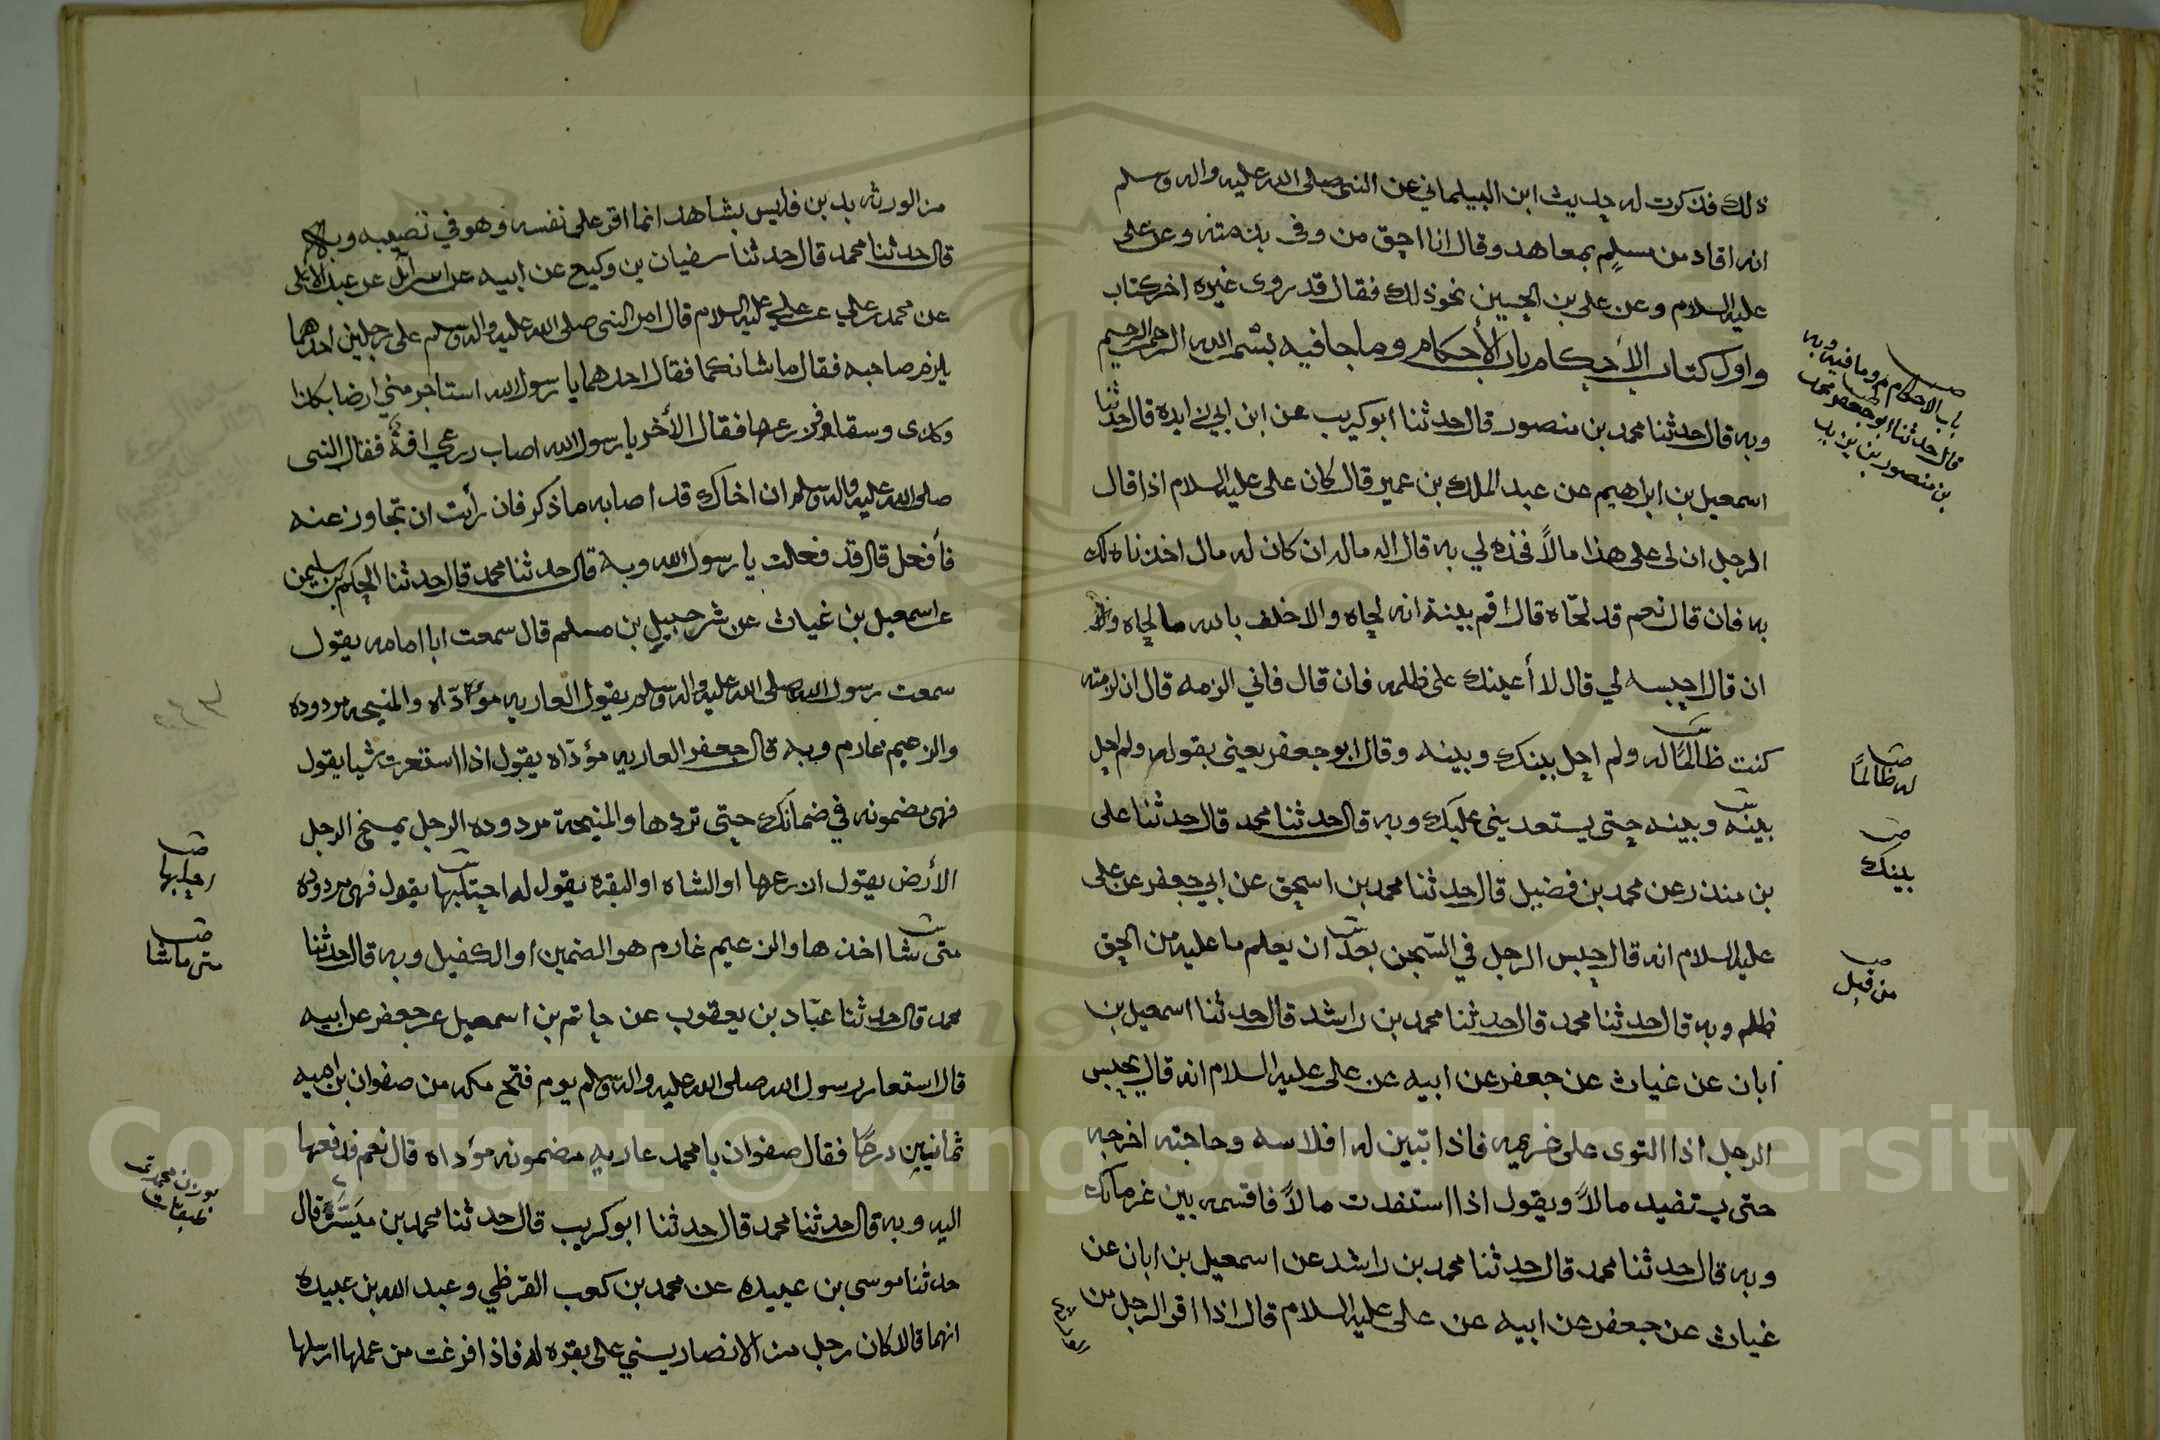 ذلك فذكرت له حديث ابن البيلماني عن النبي صلى الله عليه واله وسلم
انه اقاد من مسلم بمعاهد وقال انا احق من وفى بذمته وعن على
عليه السلام وعن على بن الحسين نحو ذلك فقال قد روى غيره اخر كتاب
واول كتاب الأحكام باب الأحكام وما جا فيه بسم الله الرحمن الرحيم
وبه قال حدثنا محمد بن منصور قال حدثنا ابو كريب عن ابن ابي زايده قال حدثنا
اسمعيل بن ابراهيم عن عبد الملك بن عمير قال كان على عليه السلام اذا قال
الرجل ان لى على هذا مالاً فخذه لي به قال اله مال ان كان له مال اخذناه لك
به فان قال نعم قد لجاه قال اقم بينة انه لجاه والا احلف بالله ما لجاه
ان قال احبسه لي قال لا أعينك على ظلمه فان قال فاني الزمه قال ان لزمته
كنت ظالمًا له ولم احل بينك وبينه وقال ابو جعفر يعني بقوله ولم احل
بينه وبينه حتى يستعديني عليك وبه قال حدثنا محمد قال حدثنا على
بن منذر عن محمد بن فضيل قال حدثنا محمد بن اسحق عن ابي جعفر عن على
عليه السلام انه قال حبس الرجل في السّجن بعد ان يعلم ما عليه من الحق
ظلم وبه قال حدثنا محمد قال حدثنا محمد بن راشد قال حدثنا اسمعيل بن
ابان عن غياث عن جعفر عن ابيه عن على عليه السلام انه قال يحبس
الرجل اذا التوى على غريمه فاذا تبين له افلاسه وحاجته اخرجه
حتى يستفيد مالاً ويقول اذا استفدت مالاً فاقسمه بين غرمائك
وبه قال حدثنا محمد قال حدثنا محمد بن راشد عن اسمعيل بن ابان عن
غياث عن جعفر عن ابيه عن على عليه السلام قال اذا اقر الرجل من
باب الاحكام وما فيه وبه
قال حدثنا ابو جعفر محمد
بن منصور بن يزيد
له ظالمًا
بينك
من قبل
من الورثه بدين فليس بشاهد انما اقر على نفسه وهو في نصيبه وبه
قال حدثنا محمد قال حدثنا سفيان بن وكيع عن ابيه عن اسرائل عن عبد الاعلى
عن محمد بن علي عن علي عليه السلام قال امر النبي صلى الله عليه واله وسلم على رجلين احدهما
يلزم صاحبه فقال ما شانكما فقال احدهما يا رسول الله استاجر مني ارضا بكذا
وكذى وسقا فزرعها فقال الأخر يا رسول الله اصاب زرعي افة فقال النبي
صلى الله عليه واله وسلم ان اخاك قد اصابه ما ذكر فان رأيت ان تجاوز عنه
فأفعل قال قد فعلت يا رسول الله وبه قال حدثنا محمد قال حدثنا الحكم بن سليمن
عن اسمعيل بن غياث عن شرحبيل بن مسلم قال سمعت ابا امامه يقول
سمعت رسول الله صلى الله عليه واله وسلم يقول العاريه مؤدّاه والمنيحه مردوده
والزعيم غارم وبه قال جعفر العاريه مؤدّاه يقول اذا استعرت شيا يقول
فهى مضمونه في ضمانك حتى تردها والمنيحة مردوده الرجل يمنح الرجل
الأرض يقول ازرعها او الشاه او البقره يقول له احتلبها يقول فهى مردوده
متى شا اخذها والزعيم غارم هو الضمين او الكفيل وبه قال حدثنا
محمد قال حدثنا عبّاد بن يعقوب عن حاتم بن اسمعيل عن جعفر عن ابيه
قال استعار رسول الله صلى الله عليه واله وسلم يوم فتح مكه من صفوان بن اميه
ثمانين درعًا فقال صفوان يا محمد عاريه مضمونه مؤداه قال نعم فدفعها
اليه وبه قال حدثنا محمد قال حدثنا ابو كريب قال حدثنا محمد بن ميسرة قال
حدثنا موسى بن عبيده عن محمد بن كعب القرظي وعبد الله بن عبيده
انهما قالا كان رجل من الانصار يسني على بقره له فاذا فرغت من عملها ارسلها
احلبها
متى ما شا
Copyright © King Saud University